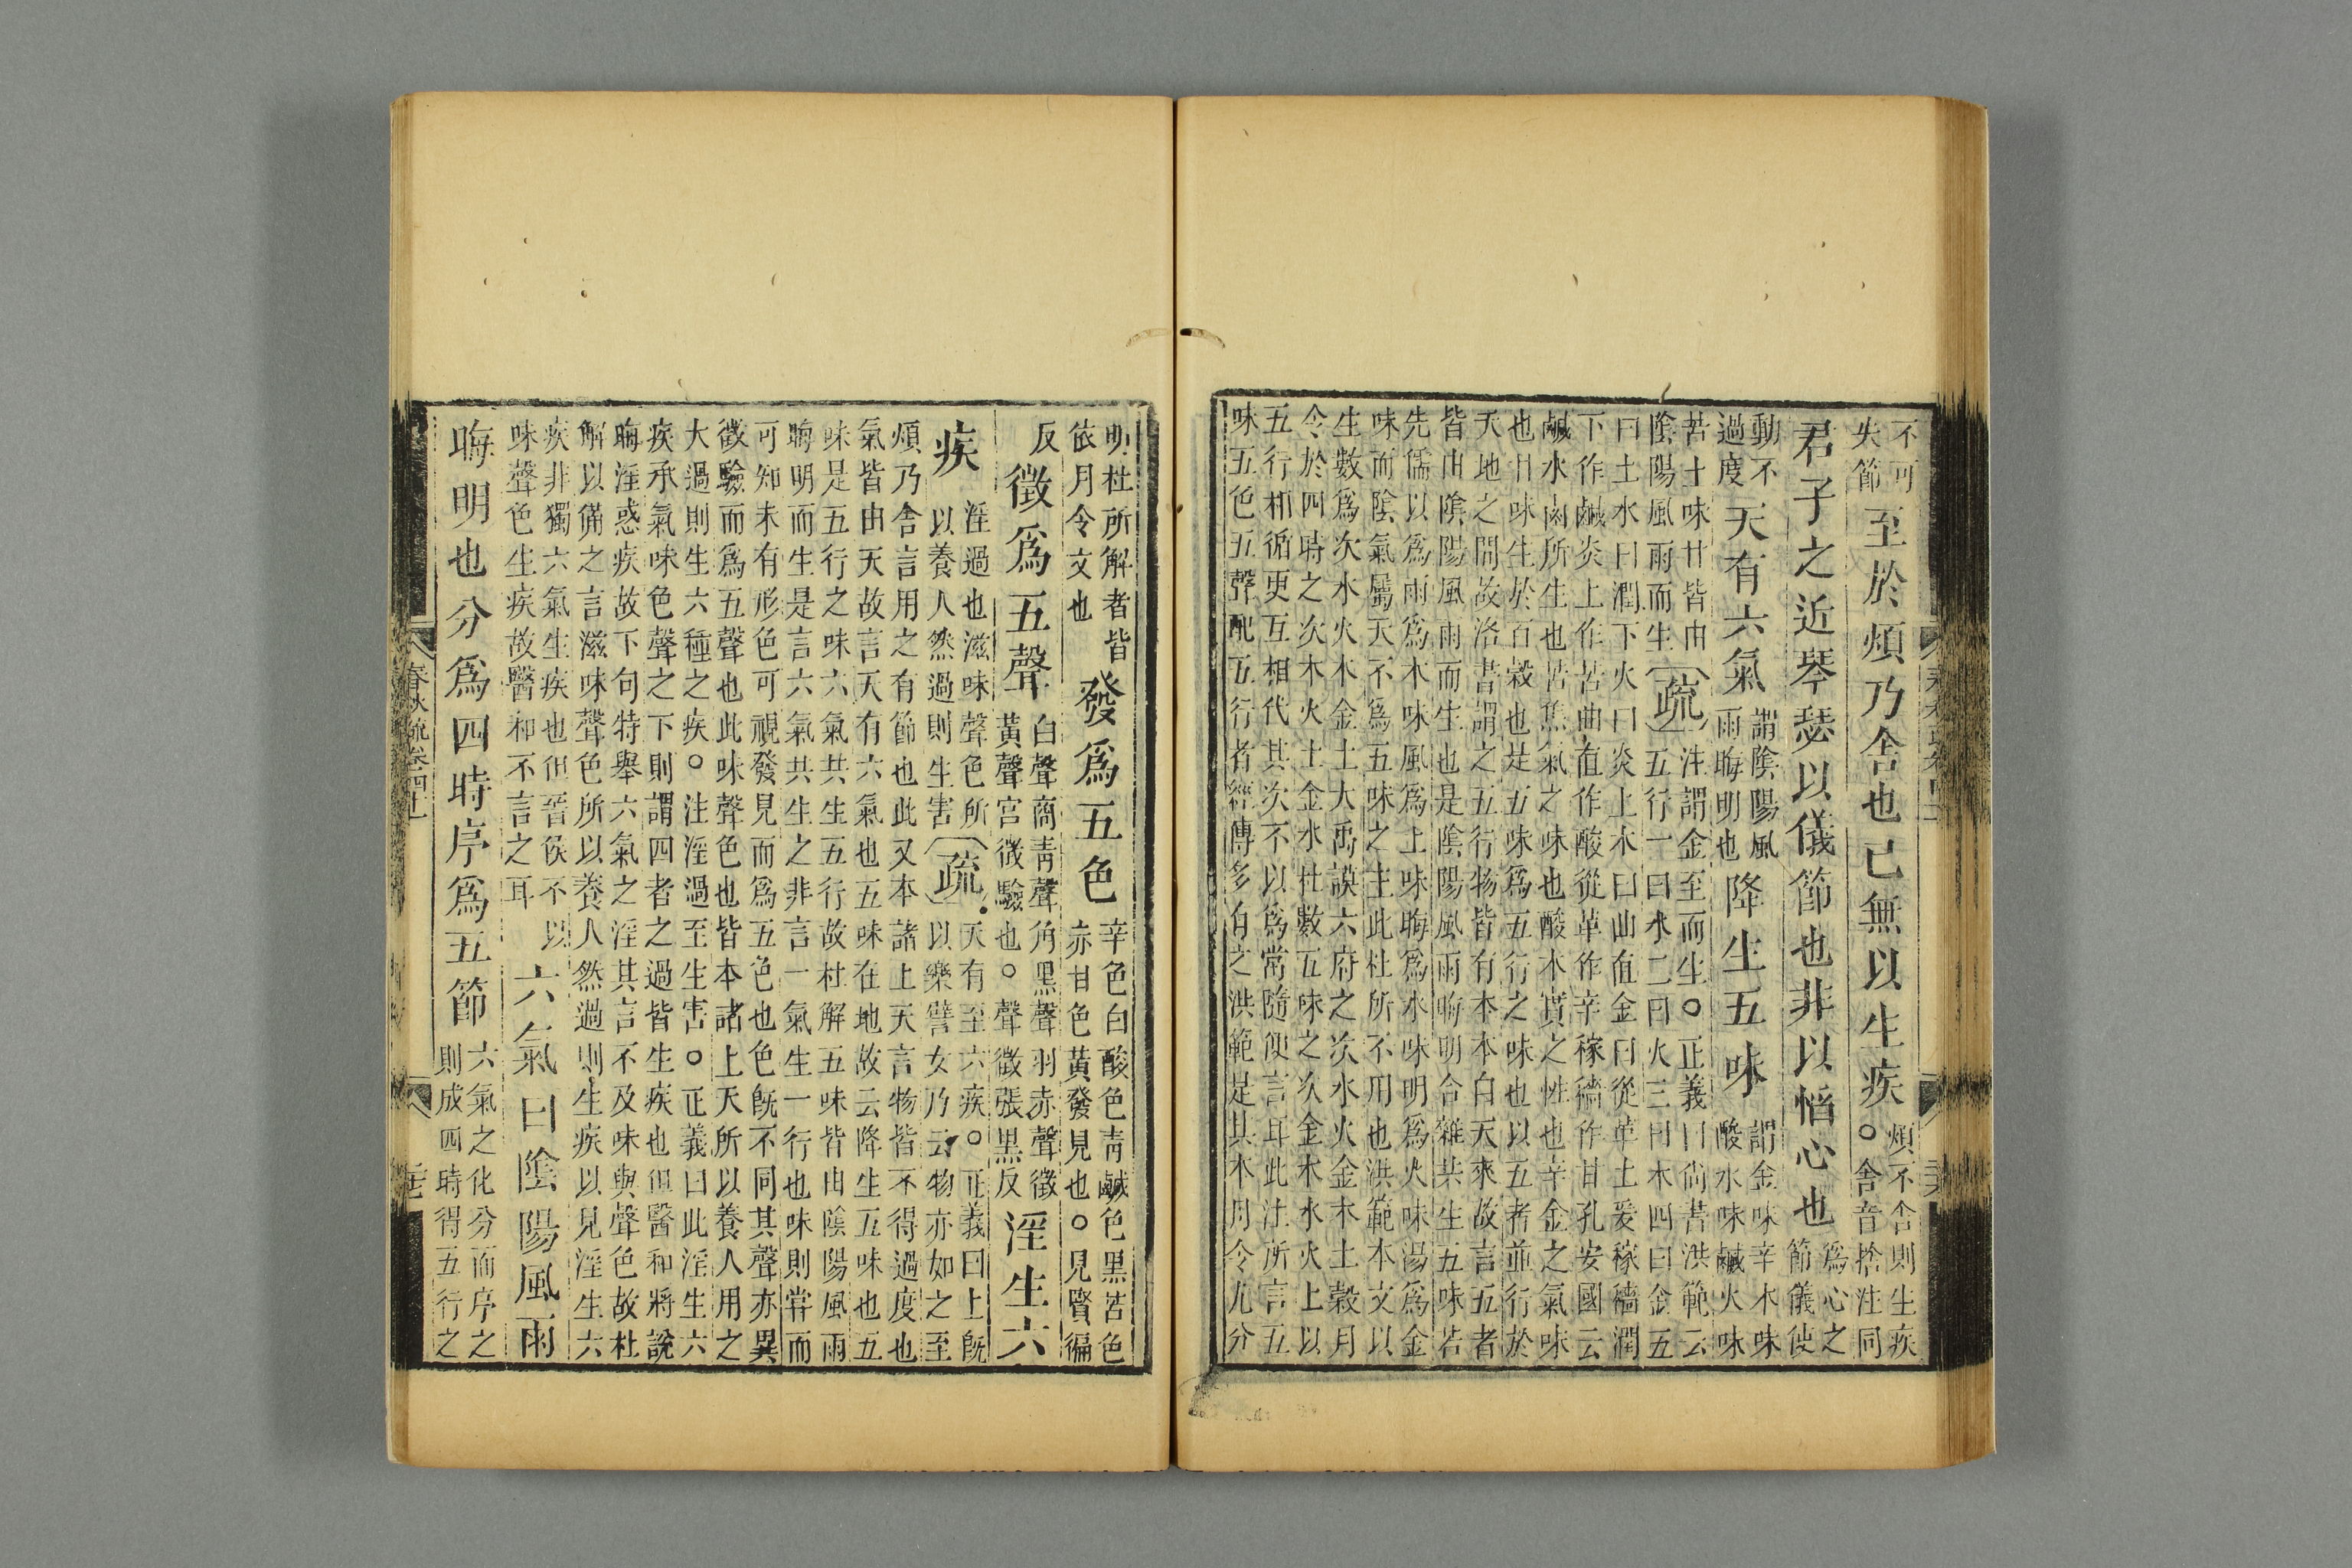 不可
失節
至於煩乃舍也已無以生疾
煩不舍則生疾
○舍音捨注同
君子之近琴瑟以儀節也非以慆心也
爲心之
節儀使
動不
過度
天有六氣
謂陰陽風
雨晦明也
降生五味
謂金味辛木味
酸水味鹹火味
苦土味甘皆由
陰陽風雨而生
疏
注謂金至而生○正義曰尚書洪範云
五行一曰水二曰火三曰木四曰金五
曰土水曰潤下火曰炎上木曰曲直金曰從革土爰稼穡潤
下作鹹炎上作苦曲直作酸從革作辛稼穡作甘孔安國云
鹹水鹵所生也苦焦氣之味也酸木實之性也辛金之氣味
也甘味生於百穀也是五味爲五行之味也以五者並行於
天地之間故洛書謂之五行物皆有本本自天來故言五者
皆由陰陽風雨而生也是陰陽風雨晦明合雜共生五味若
先儒以爲雨爲木味風爲土味晦爲水味明爲火味陽爲金
味而陰氣屬天不爲五味之主此杜所不用也洪範本文以
生數爲次水火木金土大禹謨六府之次水火金木土穀月
令於四時之次木火土金水杜數五味之次金木水火土以
五行相循更互相代其次不以爲常隨便言耳此注所言五
味五色五聲配五行者經傳多有之洪範是其本月令尤分
明杜所解者皆
依月令文也
發爲五色
辛色白酸色青鹹色黑苦色
赤甘色黃發見也○見賢徧
反
徵爲五聲
白聲商青聲角黑聲羽赤聲徵
黃聲宮徵驗也○聲徵張黑反
淫生六
疾
淫過也滋味聲色所
以養人然過則生害
疏
天有至六疾○正義曰上既
以樂譬女乃云物亦如之至
煩乃舍言用之有節也此又本諸上天言物皆不得過度也
氣皆由天故言天有六氣也五味在地故云降生五味也五
味是五行之味六氣共生五行故杜解五味皆由陰陽風雨
晦明而生是言六氣共生之非言一氣生一行也味則嘗而
可知未有形色可視發見而爲五色也色既不同其聲亦異
徵驗而爲五聲也此味聲色也皆本諸上天所以養人用之
大過則生六種之疾○注淫過至生害○正義曰此淫生六
疾承氣味色聲之下則謂四者之過皆生疾也但醫和將說
晦淫惑疾故下句特舉六氣之淫其言不及味與聲色故杜
解以備之言滋味聲色所以養人然過則生疾以見淫生六
疾非獨六氣生疾也但晉侯不以
味聲色生疾故醫和不言之耳
六氣曰陰陽風雨
晦明也分爲四時序爲五節
六氣之化分而序之
則成四時得五行之
春秋疏卷四十一